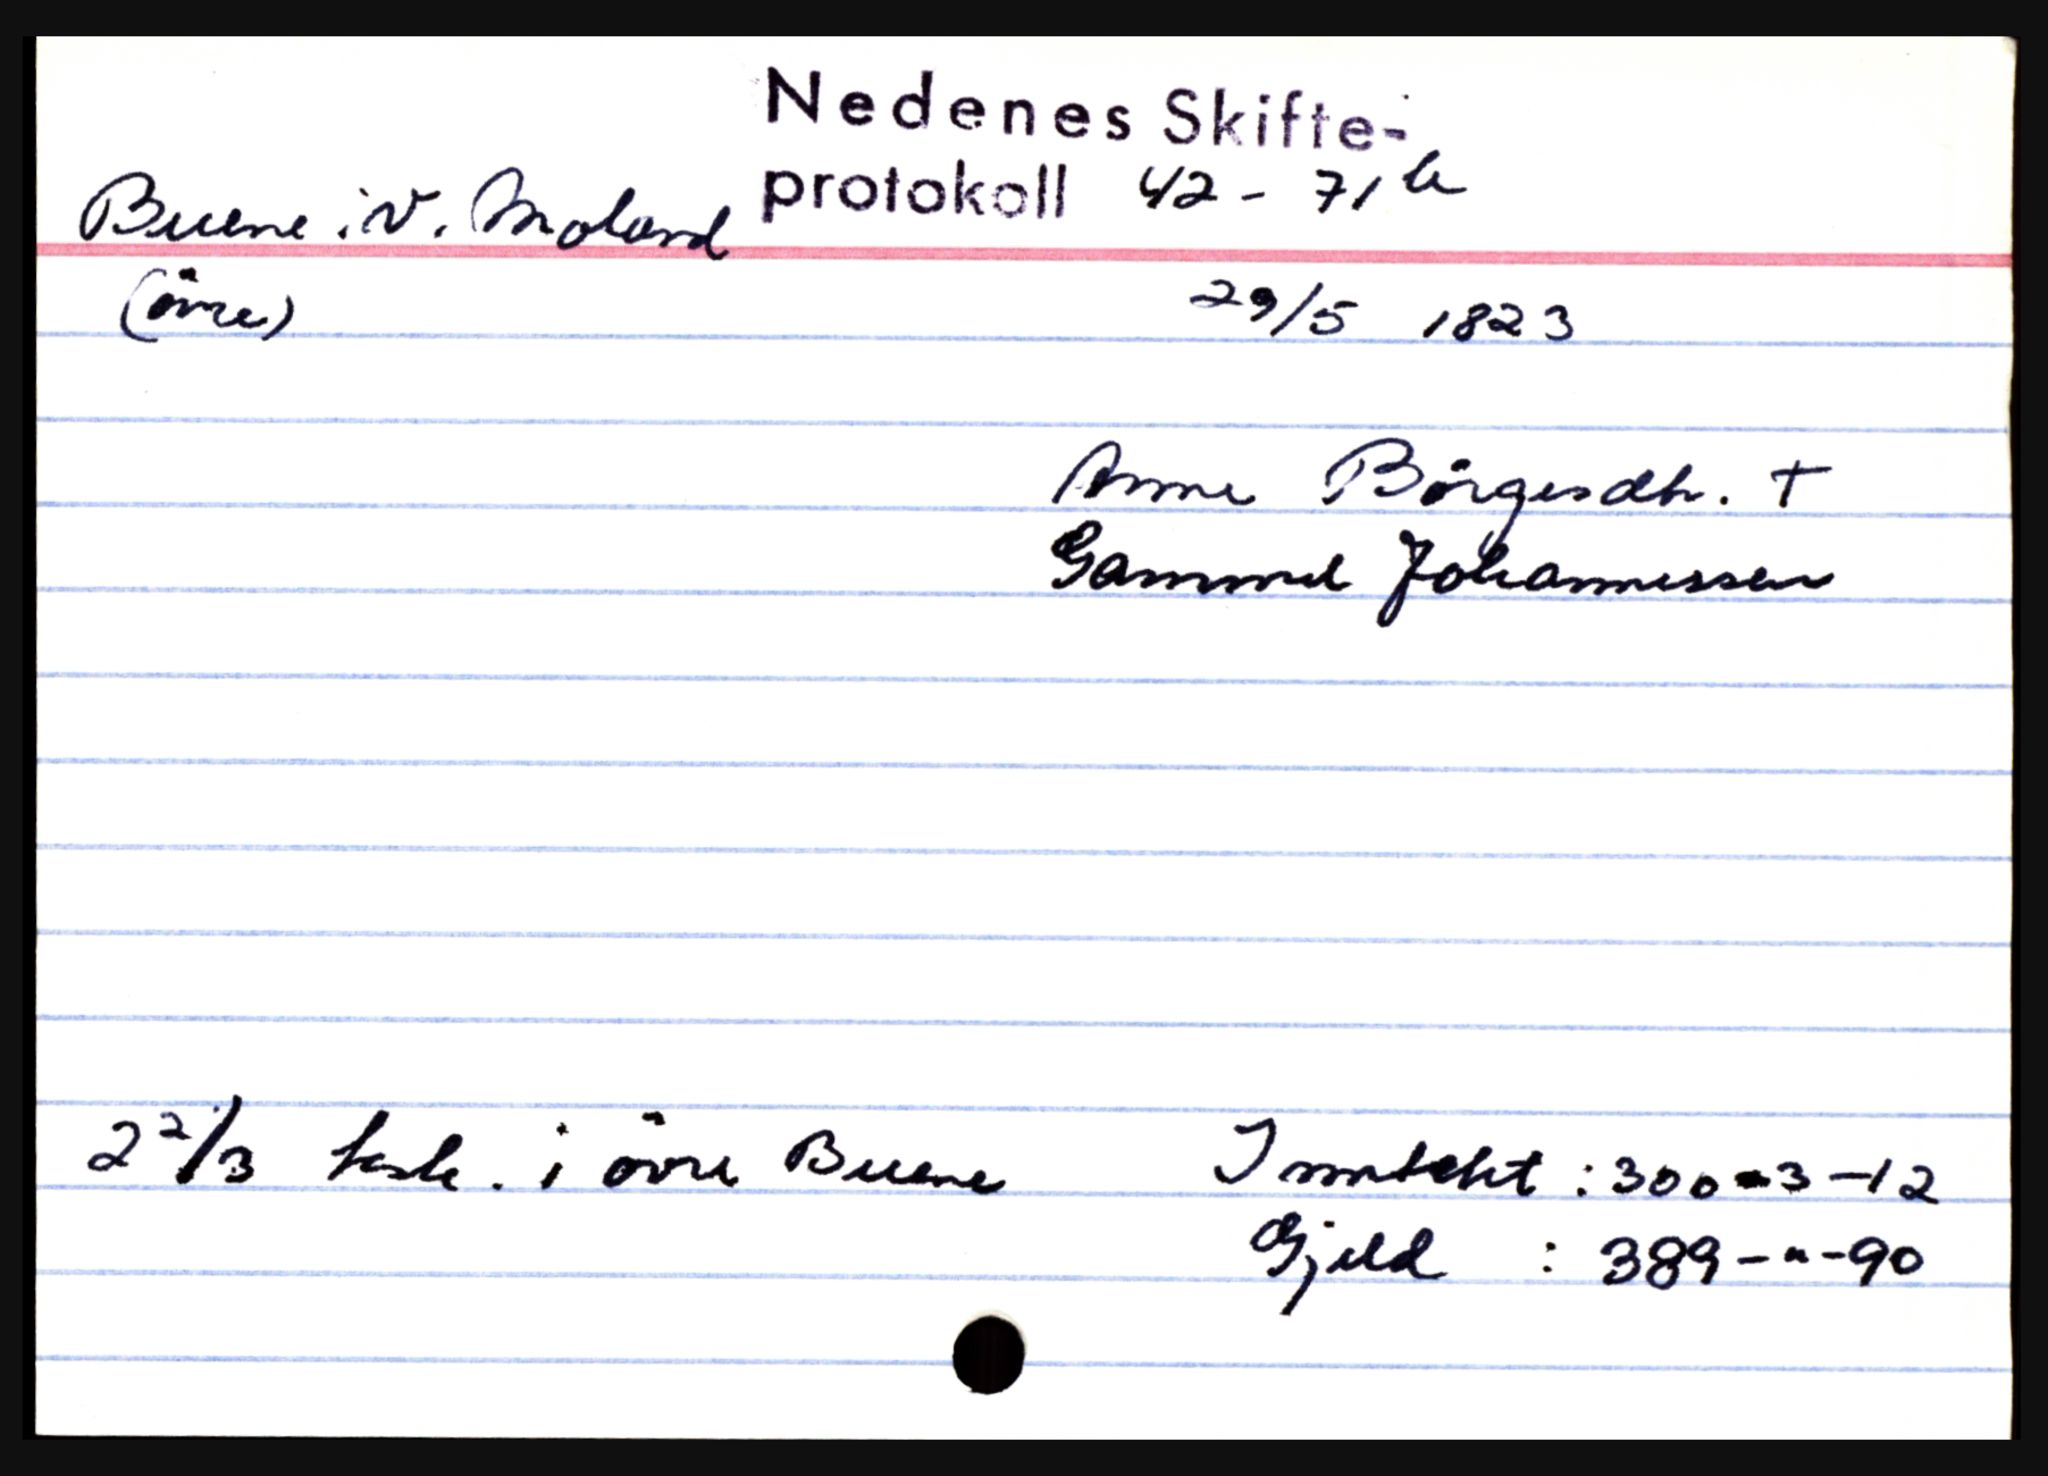 Nedenes Skifte-
protokoll 42 - 71 b
Buene i V. Moland
(övre)
29/5 1823
Anne Börgesdtr. †
Gammel Johannessen
2 2/3 kalvsk. i övre Buene
Inntekt : 300-3-12
Gjeld : 389-"-90